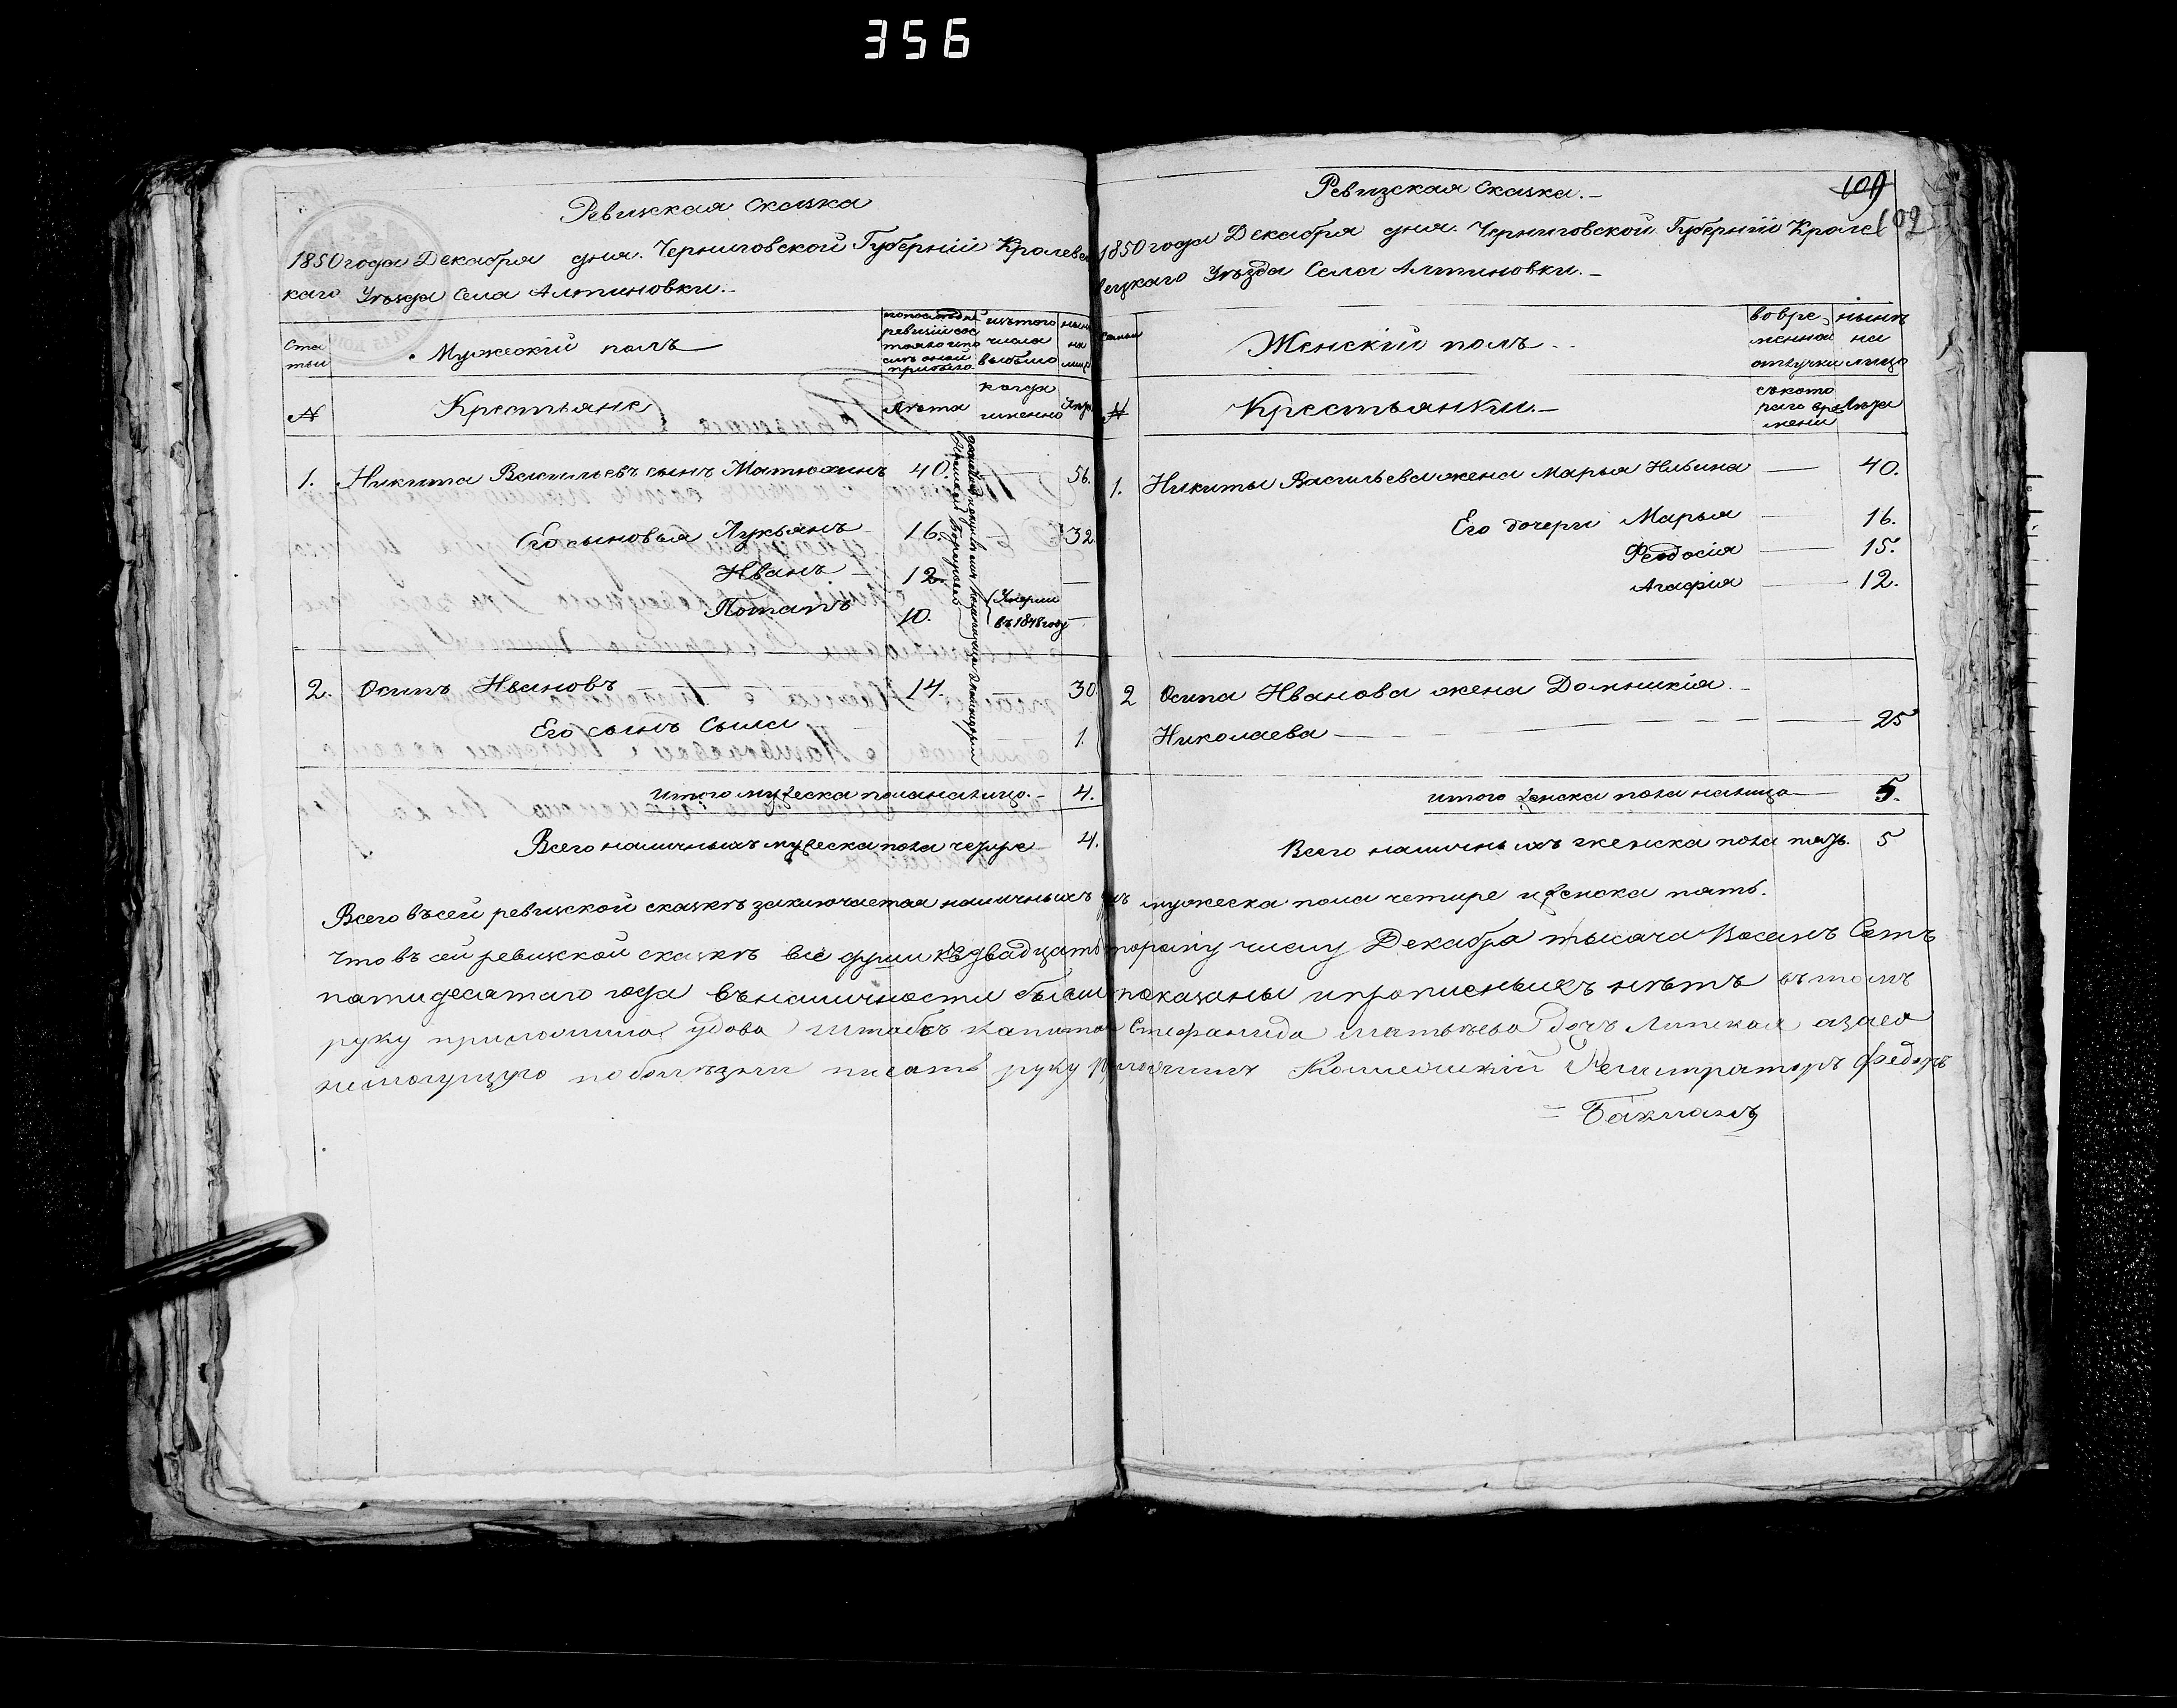 356
Ревизская сказка
1850 года Декабря дня. Черниговской Губернiи Кролевец
каго Уѣзда Села Алтиновки.
Ста
тьи
Мужескiй полъ
по последней
ревизiи сос
тояло и по
слѣ оной
прибыло.
изътого
числа
выбыло
нынѣ
на
лицо
№
Крестьяне
Лѣта
когда
именно
1. Никита Васильевъ сынъ Матюхинъ 40. 56.
Его сыновья Лукьянъ 16. 32
Иванъ 12.
Потапъ 10.
Умерли
въ 1848 году
2. Осипъ Ивановъ 14. 30
Его сынъ Сыла 1.
Итого мужеска пола налицо. 4.
Всего наличныхъ мужеска пола четыре 4.
109
109
Ревизская Сказка.
1850 года Декабря дня. Черниговской Губернiи Кроле
вецкаго Уѣзда Села Алтиновки.
Семьи
Женскiй полъ
вовре
менной
отлучки
нынѣ
на
лицо
№
Крестьянки.
съкото
раго вре
мени
Лѣта
1. Никиты Васильева жена Марья Ильина 40.
Его дочери Марья 16.
Феодосiя 15.
Агафiя 12.
2 Осипа Иванова жена Домникiя
Николаева 25
итого женска пола налицо 5.
Всего наличныхъ женска пола пять. 5
Всего въсей ревизской сказкѣ заключается наличныхъ душъ мужеска пола четыре и женска пять.
Что въ сей ревизской сказкѣ все души къ двадцать второму числу Декабра тысяча Восемъ Сотъ
пятидесятаго года въналичности были показаны ипрописныхъ нѣтъ въ томъ
руку приложила удова Штабсъ капитан Стефанида Матвѣева дочъ Липская азаео
немогущую поболѣзни писать руку приложилъ Коллежскiй Регистраторъ Федоръ
Бакланъ